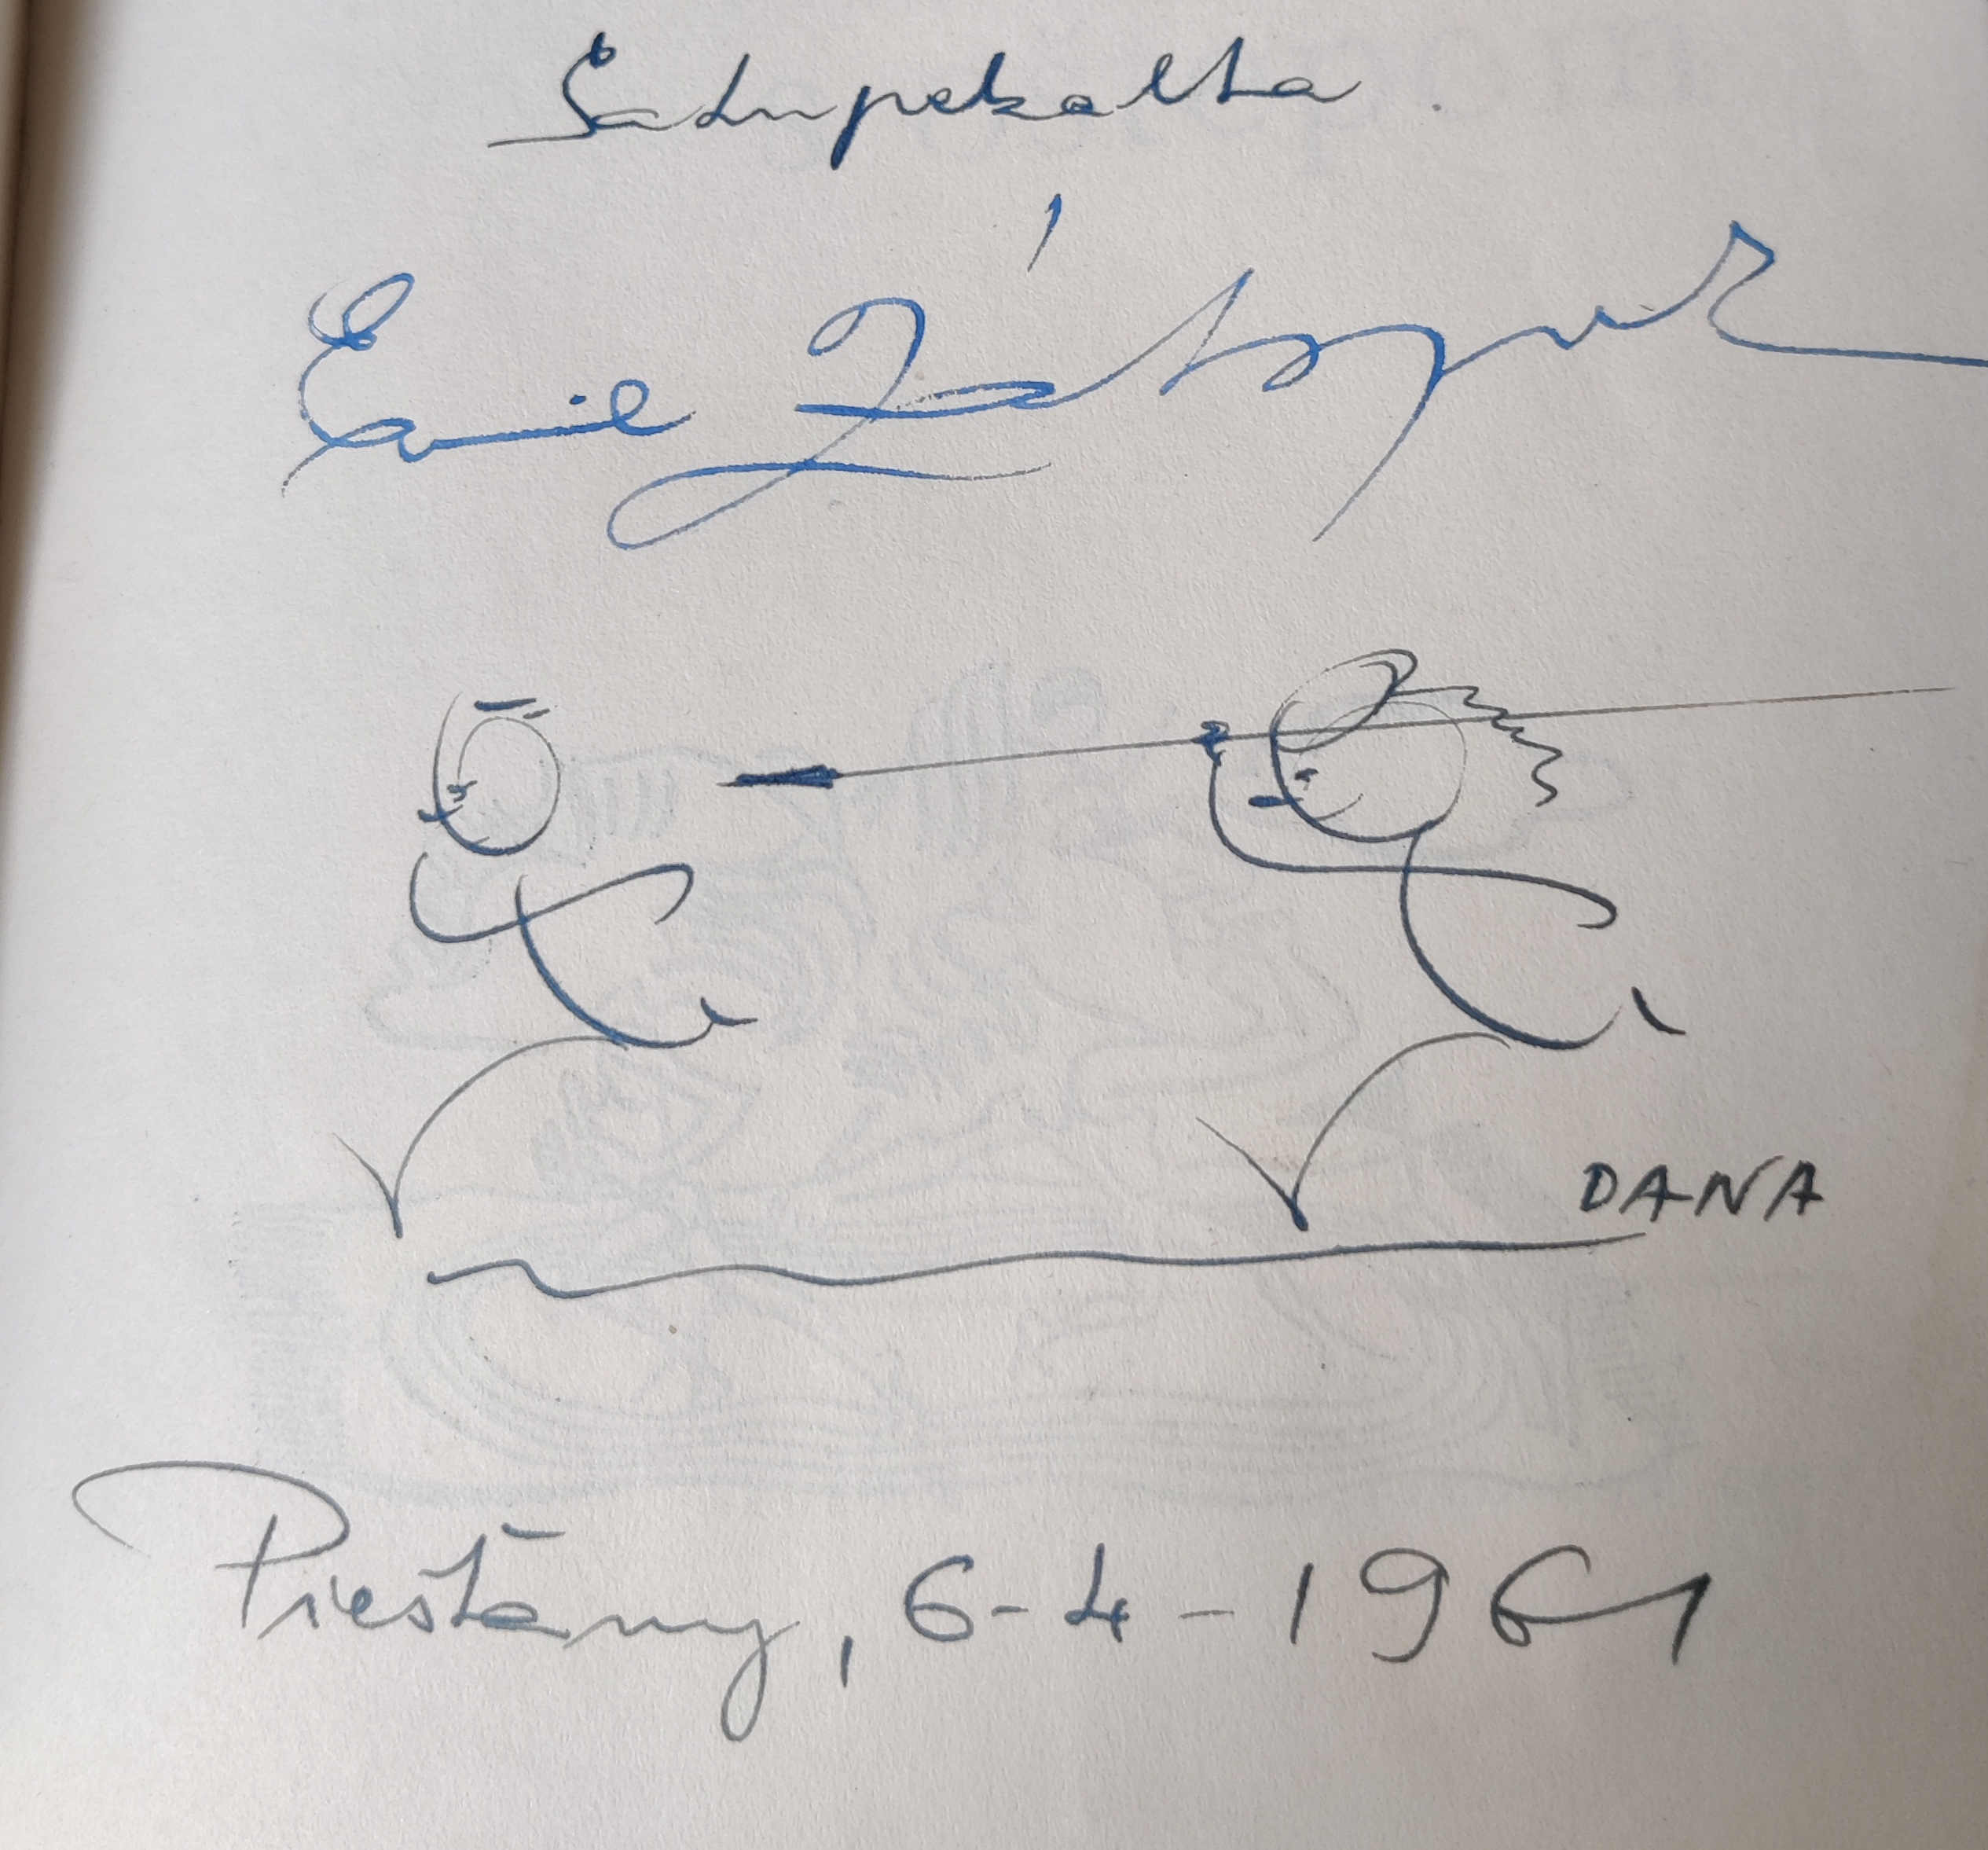 Satupekalta
Emil Zátopek
DANA
Piešťany, 6-4-1961